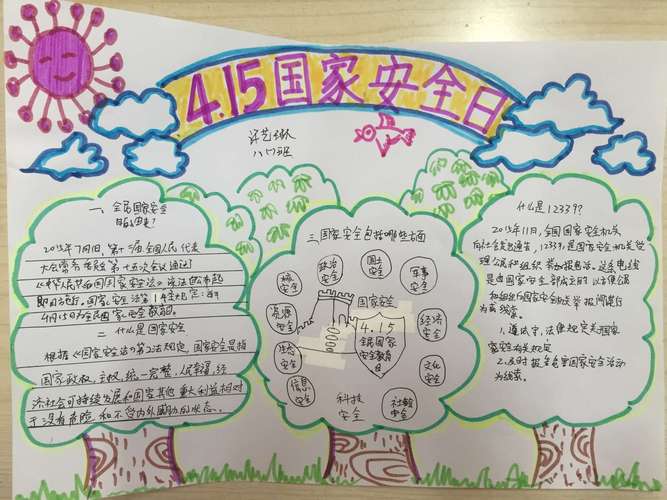 4.15国家安全日
八(1)班
一、全民国家安全
的由来?
2015年7月1日,第十二届全国人民代表
大会常务委员会第十五次会议通过
《中华人民共和国国家安全法》该法公布起
即日施行。国家安全法第14条规定:每年
4月15日为全民国家安全教育日。
二、什么是国家安全
根据《国家安全法》第2法规定,国家安全是指
国家政权、主权、统一完整、人民幸福、经
济社会可持续发展和国家其他重大利益相对
于没有危险和不受内外威胁的状态。
三、国家安全包括哪些方面
核安全
政治安全
国土安全
军事安全
资源安全
国家安全
经济安全
4.15
全民国家
安全教育
日
生态安全
文化安全
信息安全
科技安全
社会安全
什么是12339?
2015年11月,全国国家安全机关
向社会发出通告,12339是国家安全机关受
理公民和组织举报电话。这条电话
是由国家安全部设立的以方便公
和组织向国家安全机关举报间谍行
为或线索。
1、遵守宪法、法律规定关于国家
家安全有关规定
2、及时报告危害国家安全活动
为线索。